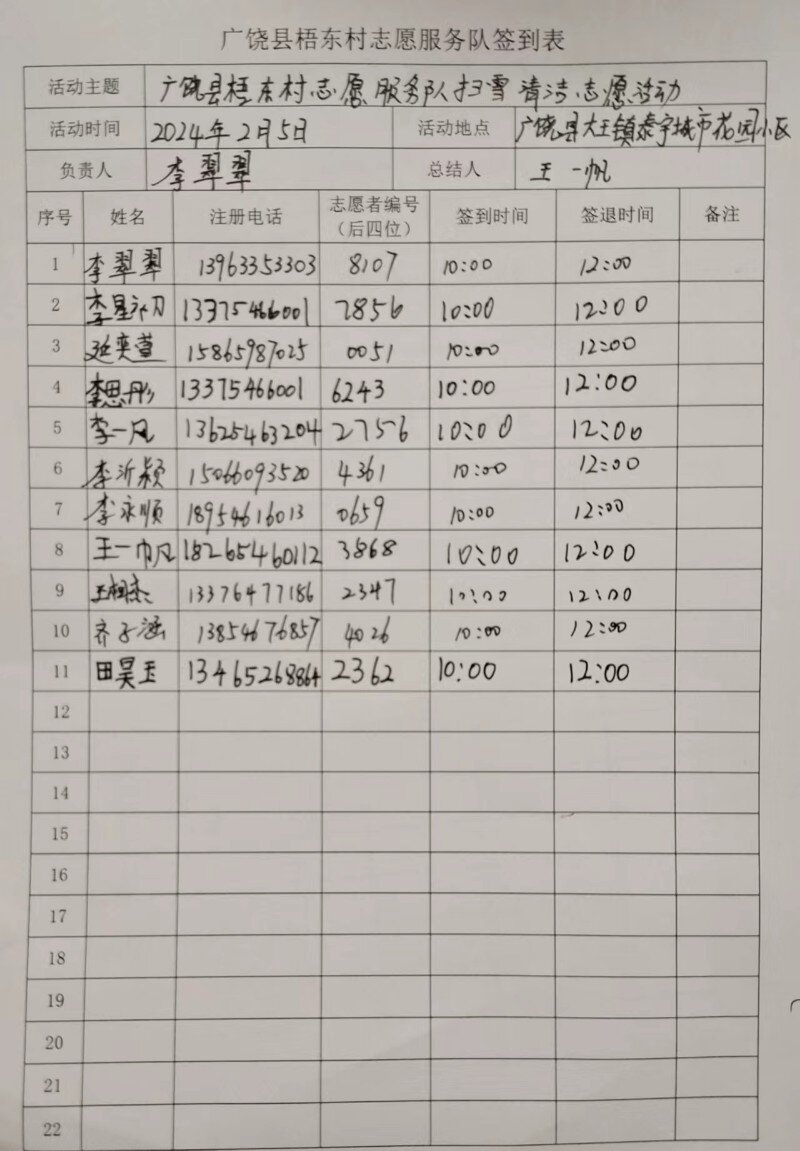 广饶县梧东村志愿服务队签到表
活动主题 广饶县梧东村志愿服务队扫雪清洁志愿活动
活动时间 2024年2月5日 活动地点 广饶县大王镇泰宇城市花园小区
负责人 李翠翠 总结人 王一帆
序号 姓名 注册电话 志愿者编号（后四位） 签到时间 签退时间 备注
1 李翠翠 13963353303 8107 10:00 12:00
2 13375466001 7856 10:00 12:00
3 延奕萱 15865987025 0051 10:00 12:00
4 李思彤 13375466001 6243 10:00 12:00
5 李一凡 13625463204 2756 10:00 12:00
6 李沂颖 15066093520 4361 10:00 12:00
7 李永顺 18954616013 0659 10:00 12:00
8 王一帆 18265460112 3868 10:00 12:00
9 13376477186 2347 10:00 12:00
10 齐子涵 13854676857 4026 10:00 12:00
11 田昊玉 13465268864 2362 10:00 12:00
12
13
14
15
16
17
18
19
20
21
22